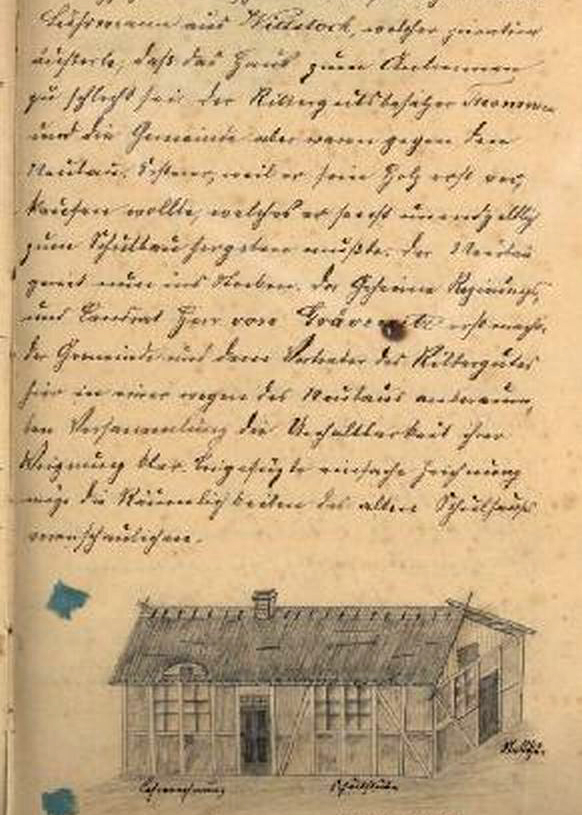 Lührmann aus Wittstock, welcher
äußerte, daß das Haus zum
zu schlecht sei. Der Rittergutsbesitzer
und die Gemeinde aber waren gegen den
Neubau. Ersterer, weil er sein Holz erst ver-
kaufen wollte, welches er sonst unentgeltlich
zum Schulbau hergeben mußte. Der Neubau
geriet nun ins Stocken. Der Geheime Regierungs-
und Landrat Herr von Graevenitz
der Gemeinde und dem Vertreter des Rittergutes
hier in einer wegen des Neubaus anberaum-
ten Versammlung die Unhaltbarkeit ihrer
Weigerung klar. Beigefügte einfache Zeichnung
möge die Räumlichkeiten des alten Schulhauses
veranschaulichen.
Lehrerwohnung
Schulstube